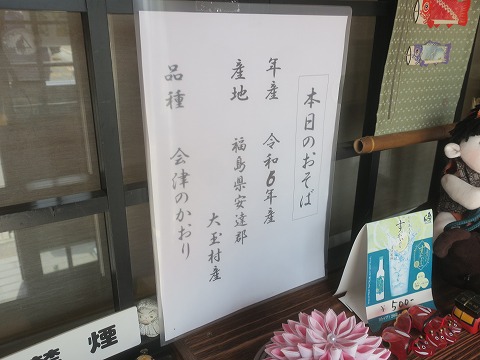 本日のおそば
年産 令和6年産
産地 福島県安達郡
大玉村産
品種 会津のかおり
禁煙
¥500-